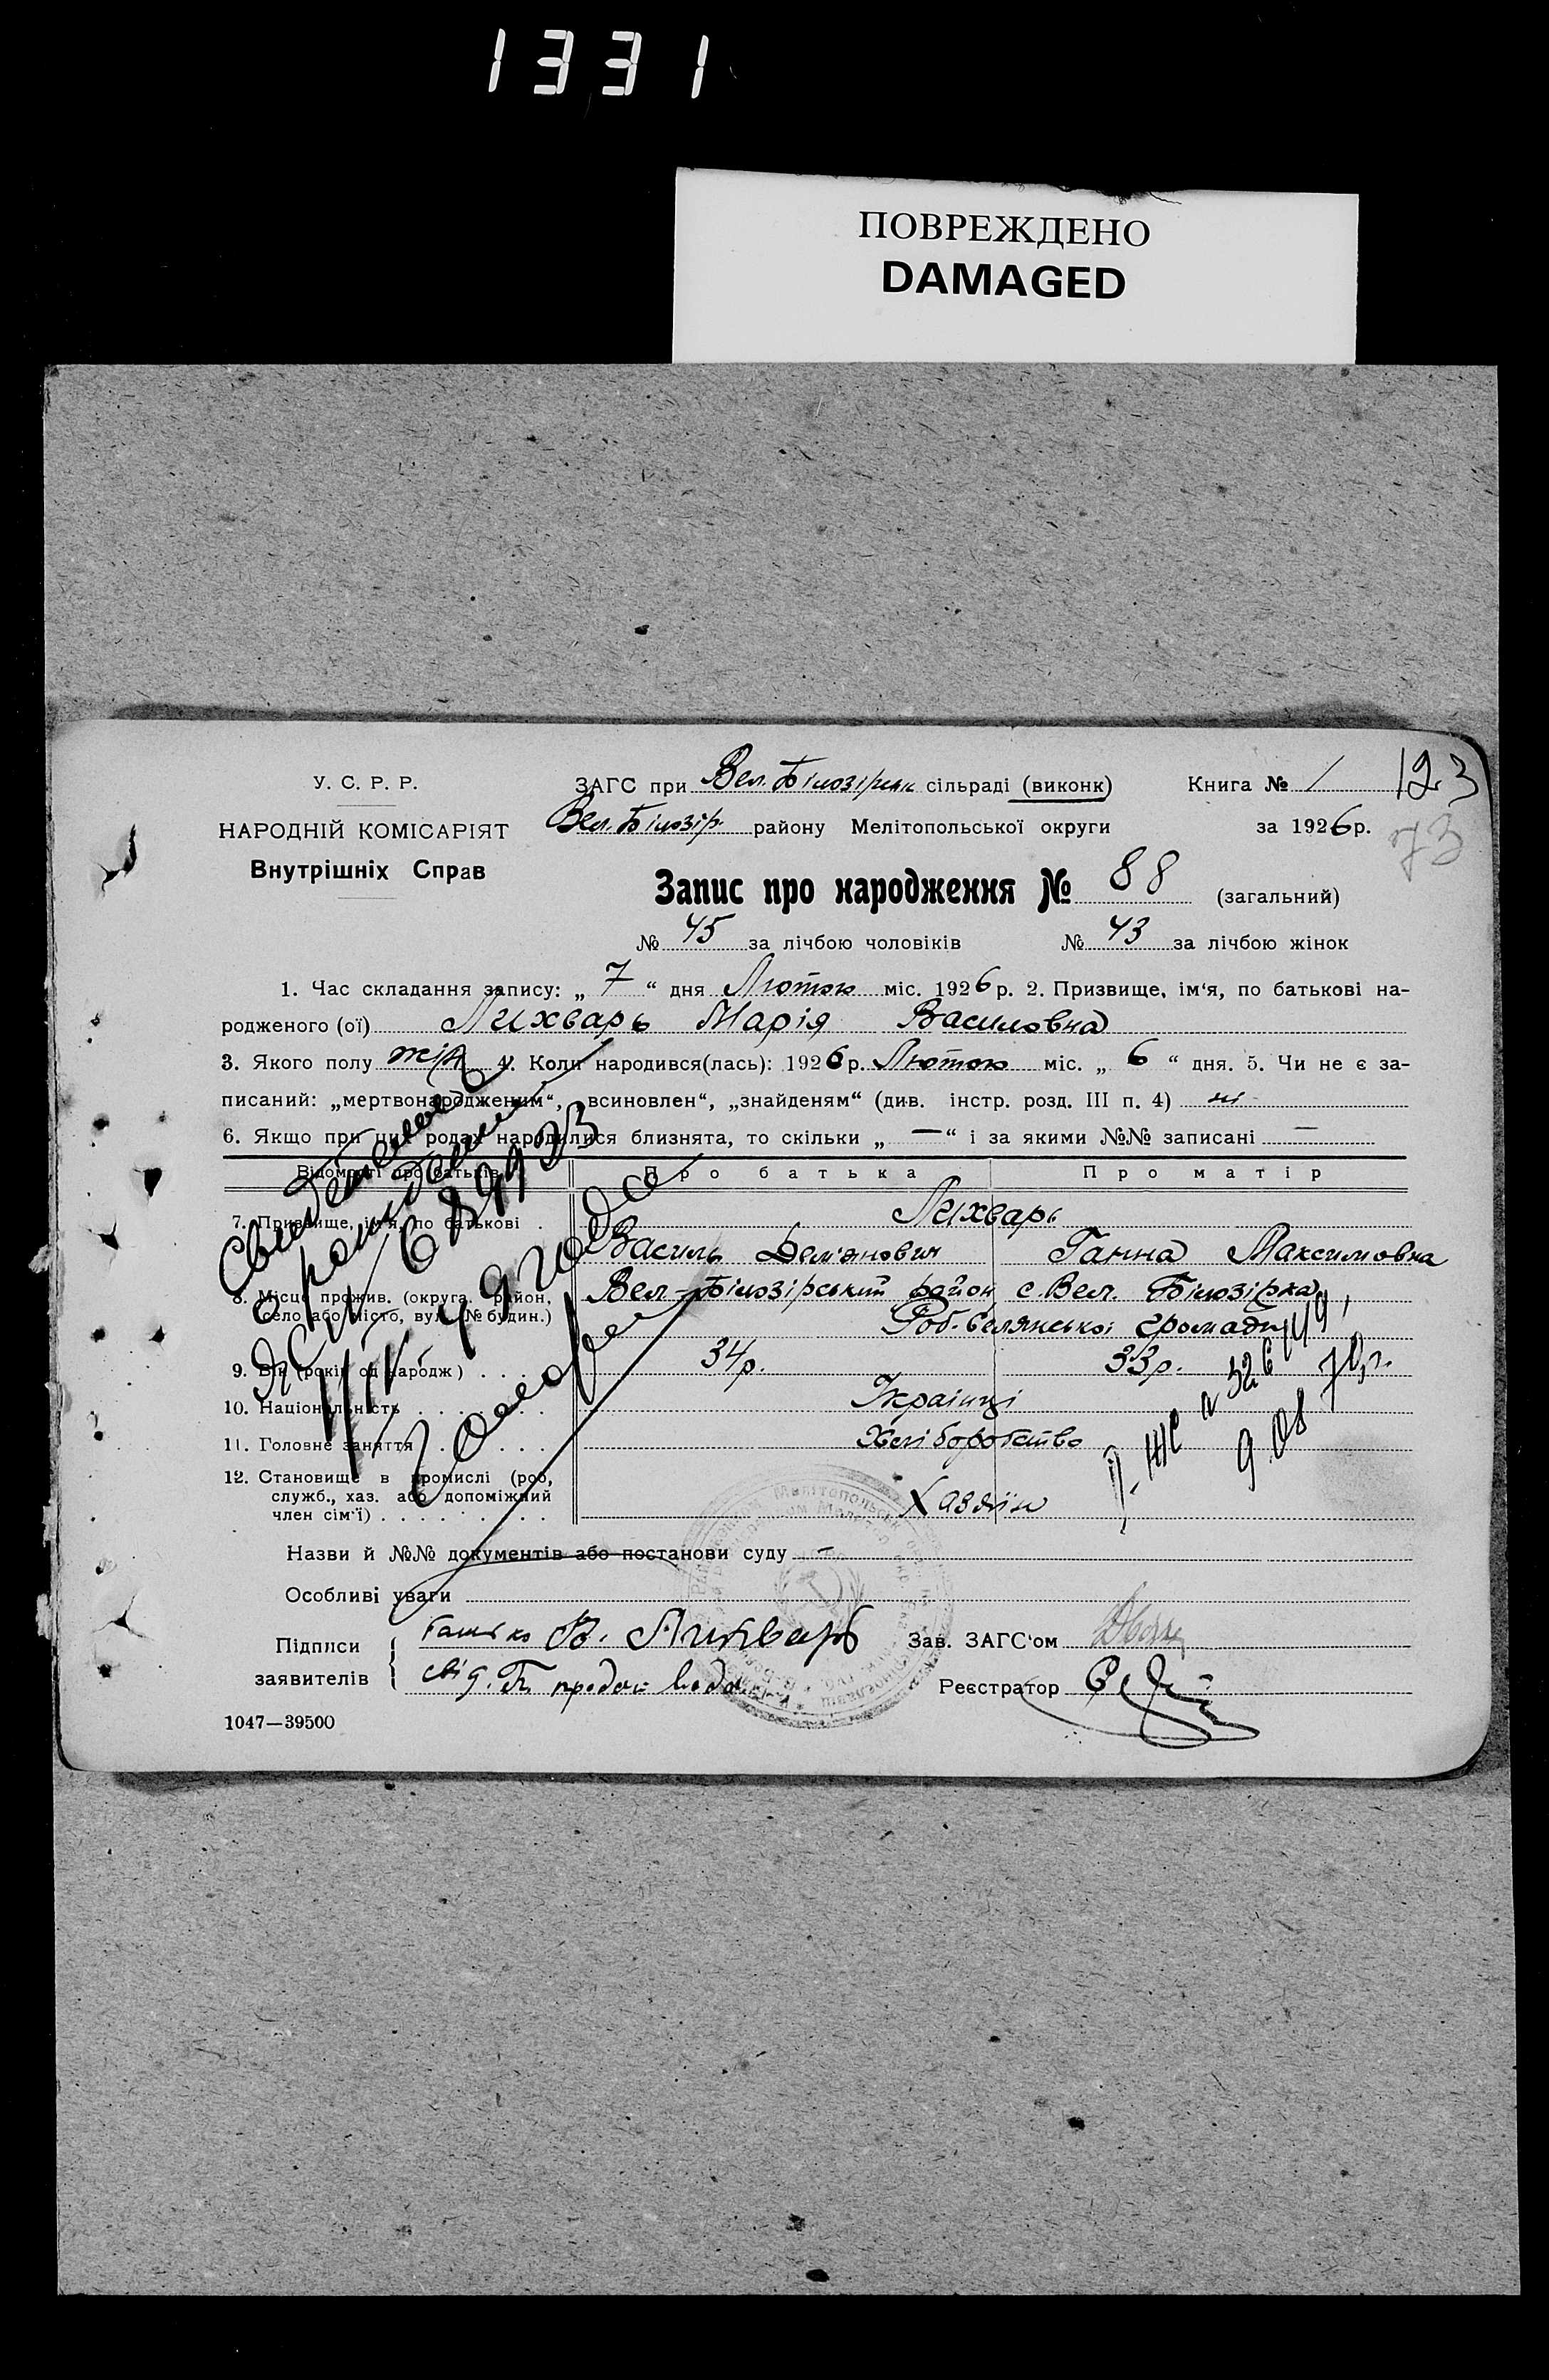 1331
ПОВРЕЖДЕНО
DAMAGED
У. С. Р. Р.
НАРОДНІЙ КОМІСАРІЯТ
Внутрішніх Справ
ЗАГС при Вел. Білозірськ сільраді (виконк) Книга № 1 123
Вел. Білозір. району Мелітопольської округи за 1926 р. 73
Запис про народження № 88 (загальний)
№ 45 за лічбою чоловіків № 43 за лічбою жінок
1. Час складання запису: „ 7 “ дня Лютого міс. 1926 р. 2. Призвище, ім'я, по батькові на-
родженого (ої) Лихварь Марія Василовна
3. Якого полу жін 4. Коли народився(лась): 1926 р. Лютого міс. „ 6 “ дня. 5. Чи не є за-
писаний: „мертвонародженим“, „всиновлен“, „знайденям“ (див. інстр. розд. III п. 4) ні
6. Якщо при цих родах народилися близнята, то скільки „ — “ і за якими №№ записані —
Відомості про батьків Про батька Про матір
7. Призвище, ім'я, по батькові . Лихварь
Василь Дем'янович Ганна Максимовна
8. Місце прожив. (округа, район, Вел-Білозірський район с. Вел. Білозірка,
село або місто, вул. № будин.) селянської громади
9. Вік (років од народж) . . . 34 р. 33 р.
10. Національність . . . . . . . Українці
11. Головне заняття . . . . . Хліборобство
12. Становище в промислі (роб,
служб., хаз. або допоміжний
член сім'ї) . . . . . . . . . Хазяїн
Свидетельство
о рождении
Назви й №№ документів або постанови суду —
Особливі уваги
Підписи заявителів
батько В. Лихварь
свід.
Зав. ЗАГС'ом
Реєстратор
1047—39500